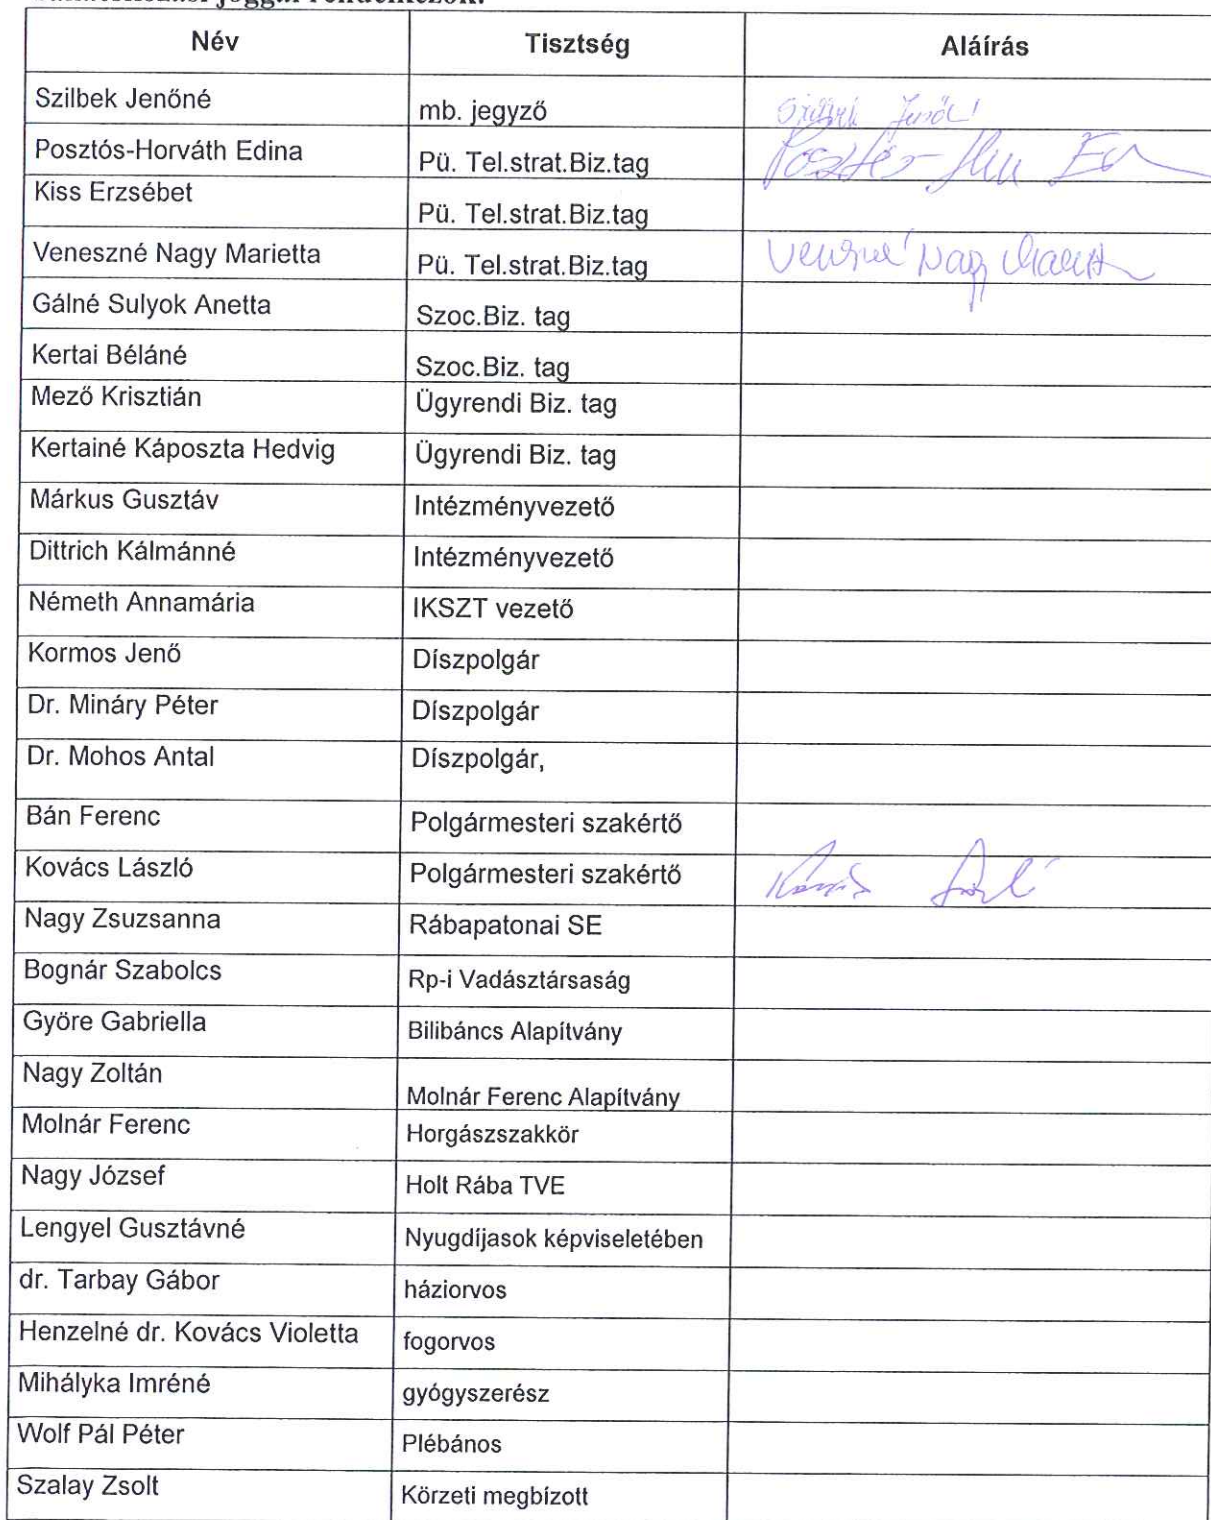 joggal rendelkezők:
Név Tisztség Aláírás
Szilbek Jenőné mb. jegyző Szilbek Jenőné
Posztós-Horváth Edina Pü. Tel.strat.Biz.tag
Kiss Erzsébet Pü. Tel.strat.Biz.tag
Veneszné Nagy Marietta Pü. Tel.strat.Biz.tag Veneszné Nagy Marietta
Gálné Sulyok Anetta Szoc.Biz. tag
Kertai Béláné Szoc.Biz. tag
Mező Krisztián Ügyrendi Biz. tag
Kertainé Káposzta Hedvig Ügyrendi Biz. tag
Márkus Gusztáv Intézményvezető
Dittrich Kálmánné Intézményvezető
Németh Annamária IKSZT vezető
Kormos Jenő Díszpolgár
Dr. Mináry Péter Díszpolgár
Dr. Mohos Antal Díszpolgár,
Bán Ferenc Polgármesteri szakértő
Kovács László Polgármesteri szakértő Kovács László
Nagy Zsuzsanna Rábapatonai SE
Bognár Szabolcs Rp-i Vadásztársaság
Györe Gabriella Bilibáncs Alapítvány
Nagy Zoltán Molnár Ferenc Alapítvány
Molnár Ferenc Horgászszakkör
Nagy József Holt Rába TVE
Lengyel Gusztávné Nyugdíjasok képviseletében
dr. Tarbay Gábor háziorvos
Henzelné dr. Kovács Violetta fogorvos
Mihályka Imréné gyógyszerész
Wolf Pál Péter Plébános
Szalay Zsolt Körzeti megbízott